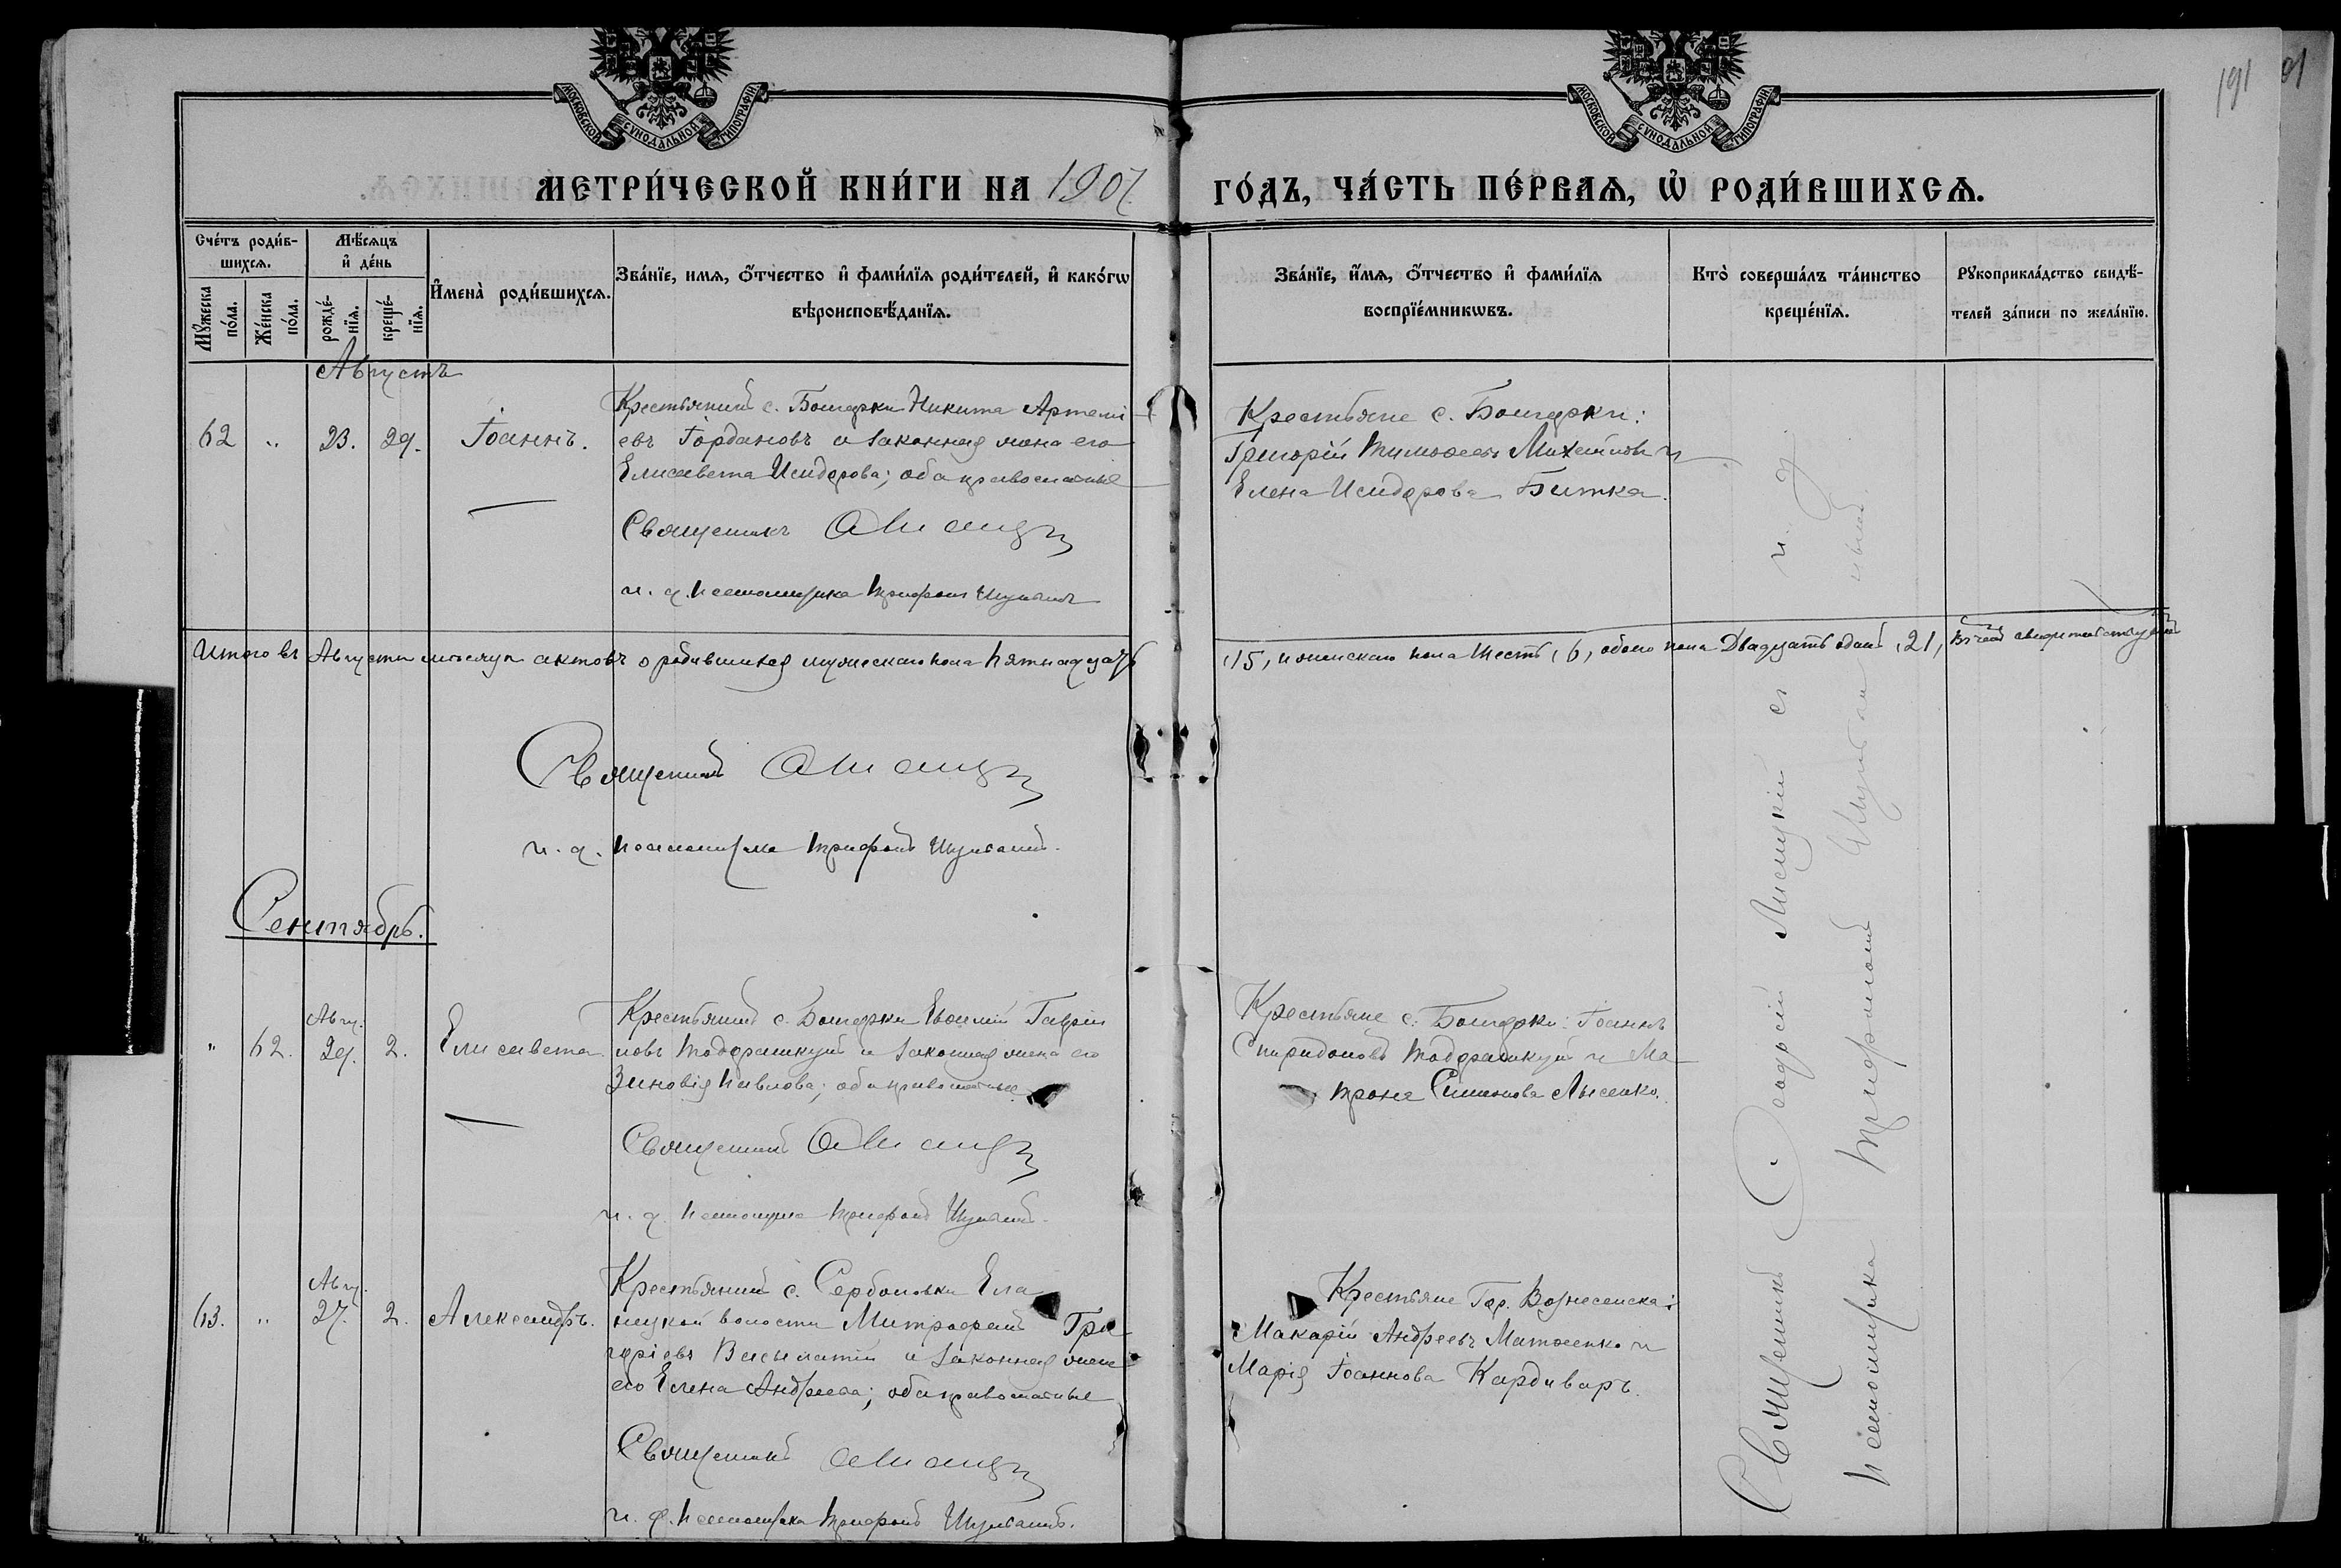 МОСКОВСКОЙ СѴНОДАЛЬНОЙ ТИПОГРАФІИ
МОСКОВСКОЙ СѴНОДАЛЬНОЙ ТИПОГРАФІИ
191
МЕТРИ́ЧЕСКОЙ КНИ́ГИ НА 1907
ГО́ДЪ, ЧА́СТЬ ПЕ́РВАѦ, Ѡ҆ РОДИ́ВШИХСѦ.
Сче́тъ роди́в-
шихсѧ.
Мꙋ́жеска по́ла.
Же́нска по́ла.
Мѣ́сѧцъ
и҆ де́нь
рожде́-
нїѧ.
креще́-
нїѧ.
И҆мена̀ роди́вшихсѧ.
Зва́нїе, имѧ, ѻ҆́тчество и҆ фами́лїѧ роди́телей, и҆ како́гѡ
вѣроисповѣ́данїѧ.
Зва́нїе, и҆́мѧ, ѻ҆́тчество и҆ фами́лїѧ
воспрїе́мникѡвъ.
Кто̀ соверша́лъ та́инство
креще́нїѧ.
Рꙋкоприкла́дство свидѣ́-
телей за́писи по жела́нїю.
Августъ
62 " 23. 29. Іоаннъ.
Крестьянинъ с. Бошерки Никита Артемі-
евъ Іордановъ и законная жена его
Елисавета Исидорова; оба православные
Священникъ
и. д. псаломщика Трифонъ
Крестьяне с. Бошерки:
Григорій Тимофеевъ и
Елена Исидорова Битка.
Итого въ Августѣ мѣсяцѣ актовъ о родившихся мужескаго пола пятнадцать
(15), и женскаго пола шесть (6), обоего пола двадцать одинъ (21), въ чемъ свидетельствуемъ
Священникъ
и. д. псаломщика Трифонъ
Сентябрь.
" 62. Авгу. 29. 2. Елисавета
Крестьянинъ с. Бошерки Гаврiи
ловъ Тодорашкуцъ и законная жена его
Зиновія Павлова; оба православные
Священникъ
и. д. псаломщика Трифонъ
Крестьяне с. Бошерки: Іоаннъ
Спиридоновъ Тодорашкуцъ и Ма-
трона Симеонова Лысенко.
63. " Авгу. 27. 2. Александръ.
Крестьянинъ с. Сербоновки Ела
нецкой волости Митрофанъ Гри
горіевъ и законная жена
его Елена Андреева; оба православные
Священникъ
и. д. псаломщика Трифонъ
Крестьяне Гор. Вознесенска:
Макарій Андреевъ Матвеенко и
Марія Іоаннова Кардиваръ.
Священникъ Лисицкій съ и. д.
псаломщика Трифономъ